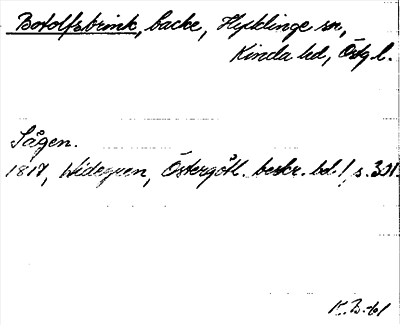 Botolfsbrink, backe, Hycklinge sn,
Kinda hd, Östg l.
Sägen.
1817, Widegren, Östergötl. beskr. bd. 1, s. 331.
K.B.-61